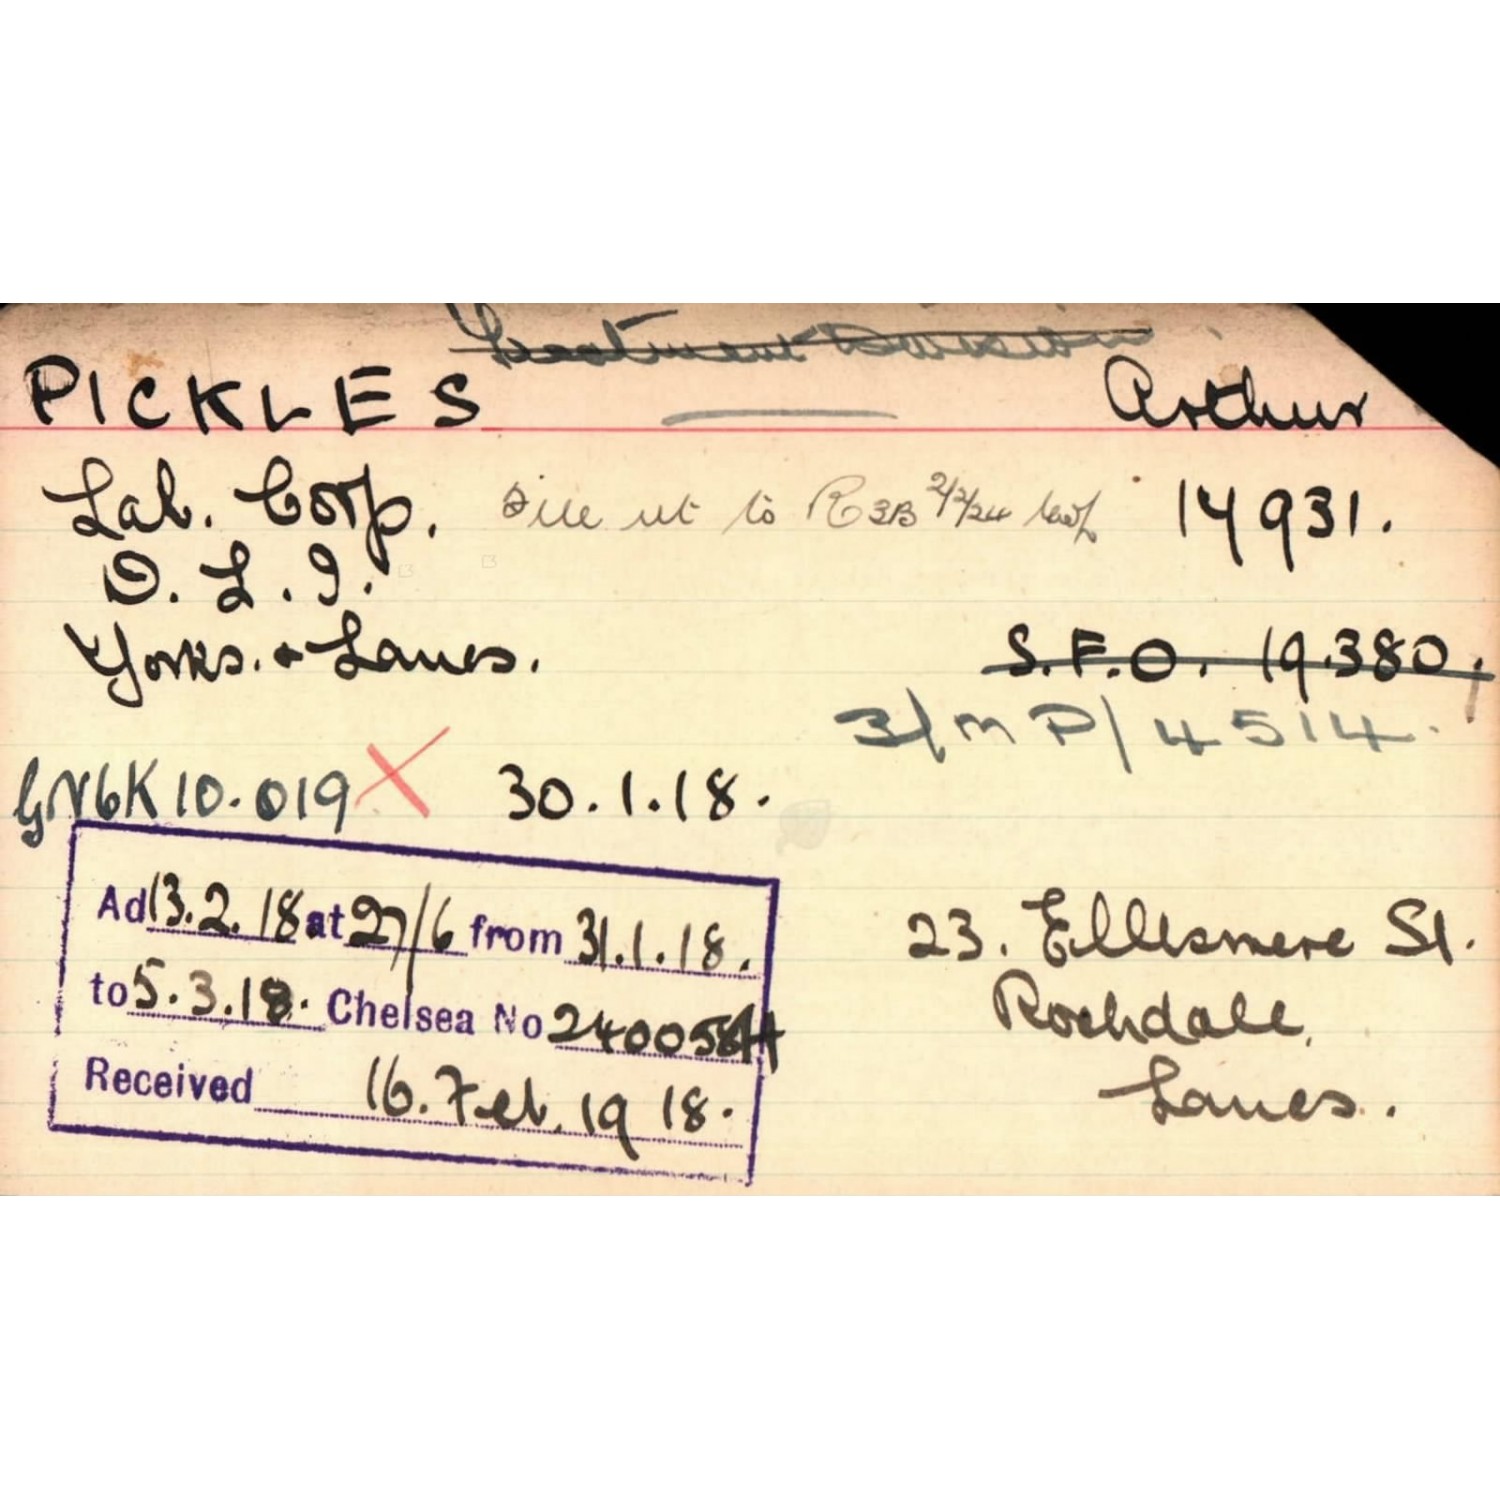 Treatment Division
PICKLES Arthur
Lab. Corp. File ut to R3B 2/7/24 14931.
D. L. I.
Yorks. + Lancs. S.F.O. 19.380.
3/MP/4514.
6K10.019 X 30.1.18.
Ad 13.2.18 at 27/6 from 31.1.18.
to 5.3.18. Chelsea No 240058
Received 16. Feb. 1918.
23. Ellesmere St.
Rochdale,
Lancs.